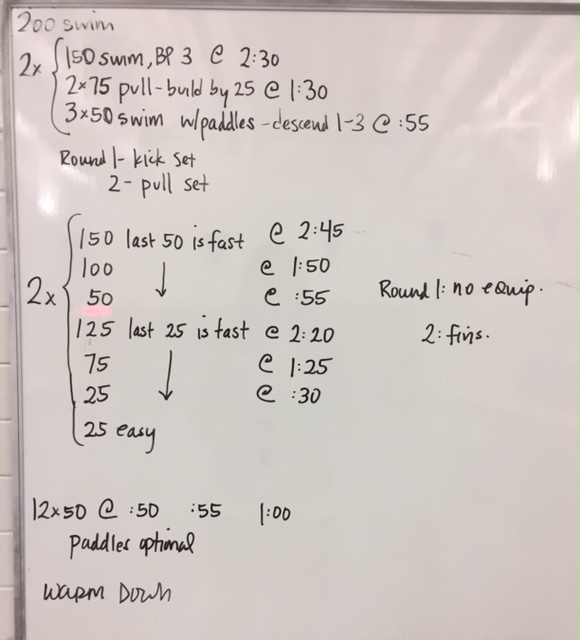 200 swim
2x
150 swim, BP 3 @ 2:30
2x75 pull-build by 25 @ 1:30
3x50 swim w/paddles -descend 1-3 @ :55
Round 1- kick set
2- pull set
2x
150 last 50 is fast @ 2:45
100 ↓ @ 1:50
50 @ :55
125 last 25 is fast @ 2:20
75 ↓ @ 1:25
25 @ :30
25 easy
Round 1: no equip.
2: fins.
12x50 @ :50 :55 1:00
paddles optional
Warm Down